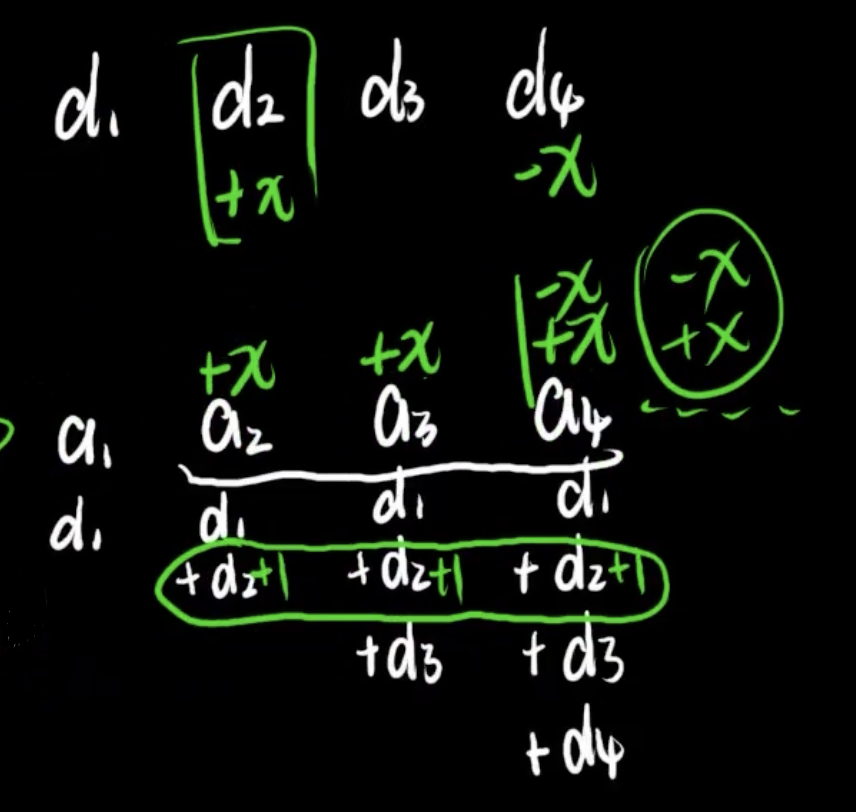 d₁ d₂ d₃ d₄
+x -x
-x -x
+x +x +x +x
a₁ a₂ a₃ a₄
d₁ d₁ d₁ d₁
+d₂+1 +d₂+1 +d₂+1
+d₃ +d₃
+d₄